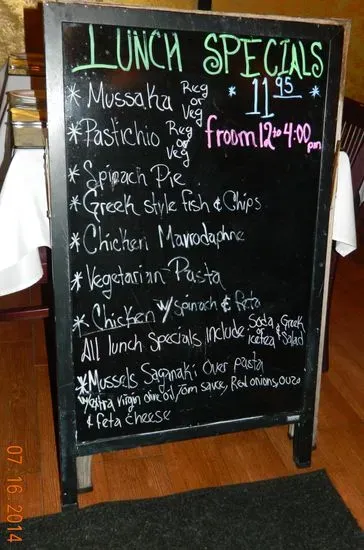 LUNCH SPECIALS
* 11 95 *
* Mussaka Reg or Veg
* Pastichio Reg or Veg
froom 12 to 4:00 pm
* Spinach Pie
* Greek style fish & Chips
* Chicken Mavrodaphne
* Vegetarian Pasta
* Chicken w/ spinach & feta
All lunch Specials include Soda or Icetea & Greek Salad
* Mussels Saganaki Over pasta
w/extra virgin olive oil, tom sauce, Red onions, ouzo
& feta cheese
07.16.2014